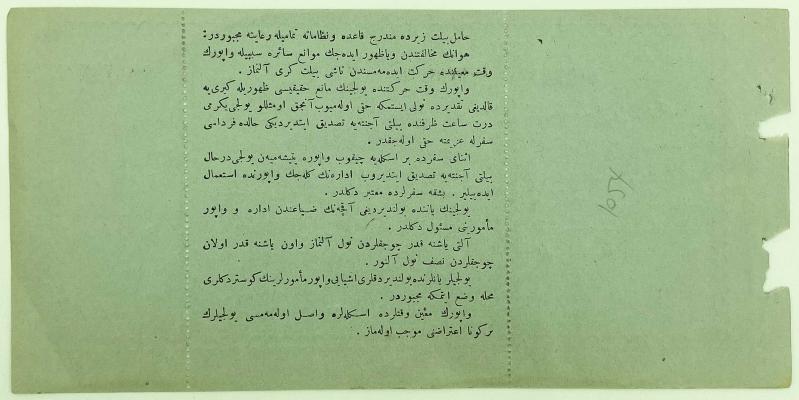 حامل بیلت زیرده مندرج قاعده ونظاماته تمامیله رعایته مجبوردر:
هوانك مخالفتندن ویاظهور ایده‌جك موانع سائره سببیله واپورك
وقت معیننده حرکت ایده‌مه‌مسندن ناشی بیلت کری آلنماز .
واپورك وقت حرکتنده یولجینك مانع حقیقیسی ظهوریله کیری‌یه
قالدیغی تقدیرده نولی ایستمکه حقی اوله‌میوب آنجق اومثللو یولجی یکرمی
درت ساعت ظرفنده بیلتی آجنته‌یه تصدیق ایتدیردیکی حالده فرداسی
سفرله عزیمته حقی اوله‌جقدر .
اثنای سفرده بر اسکله‌یه چیقوب واپوره یتیشه‌میه‌ن یولجی درحال
بیلتی آجنته‌یه تصدیق ایتدیروب اداره‌نك کله‌جك واپورنده استعمال
ایده‌بیلیر . بشقه سفرلرده معتبر دکلدر .
یولجینك یاننده بولندیردیغی آقچه‌نك ضیاعندن اداره و واپور
مأمورینی مسئول دکلدر .
آلتی یاشنه قدر چوجقلردن نول آلنماز واون یاشنه قدر اولان
چوجقلردن نصف نول آلنور .
یولجیلر یانلرنده بولندیردقلری اشیایی واپور مأمورلرینك کوستردکلری
محله وضع ایتمکه مجبوردر .
واپورك معین وقتلرده اسکله‌لره واصل اوله‌مه‌مسی یولجیلرك
برکونا اعتراضنی موجب اوله‌ماز .
1054